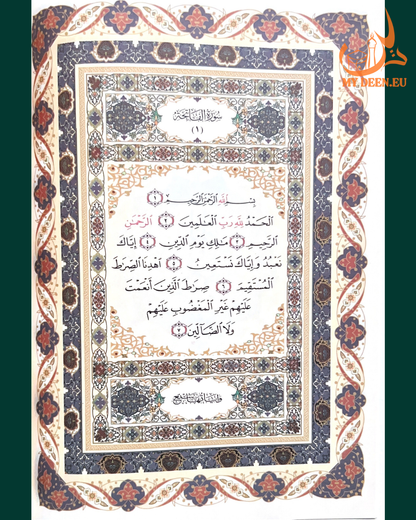 MY.DEEN.EU
سُورَةُ الفَاتِحَةِ
(١)
بِسْمِ اللَّهِ الرَّحْمَٰنِ الرَّحِيمِ ١
الْحَمْدُ لِلَّهِ رَبِّ الْعَالَمِينَ ٢ الرَّحْمَٰنِ
الرَّحِيمِ ٣ مَالِكِ يَوْمِ الدِّينِ ٤ إِيَّاكَ
نَعْبُدُ وَإِيَّاكَ نَسْتَعِينُ ٥ اهْدِنَا الصِّرَاطَ
الْمُسْتَقِيمَ ٦ صِرَاطَ الَّذِينَ أَنْعَمْتَ
عَلَيْهِمْ غَيْرِ الْمَغْضُوبِ عَلَيْهِمْ
وَلَا الضَّالِّينَ ٧